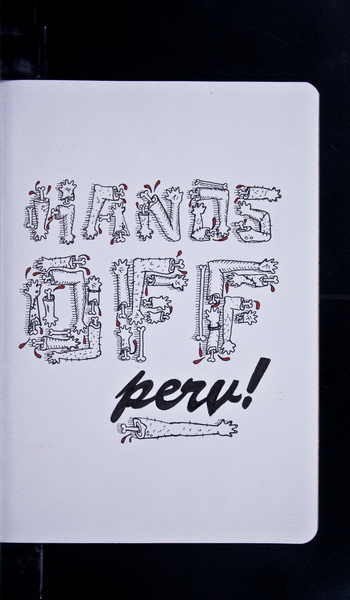 HANDS
OFF
perv!